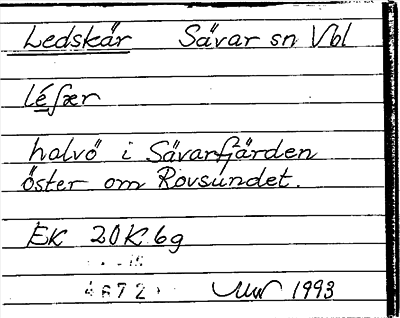 Ledskär Sävar sn Vbl
léſær
halvö i Sävarfjärden
öster om Rovsundet.
EK 20K 6g
4672 1993